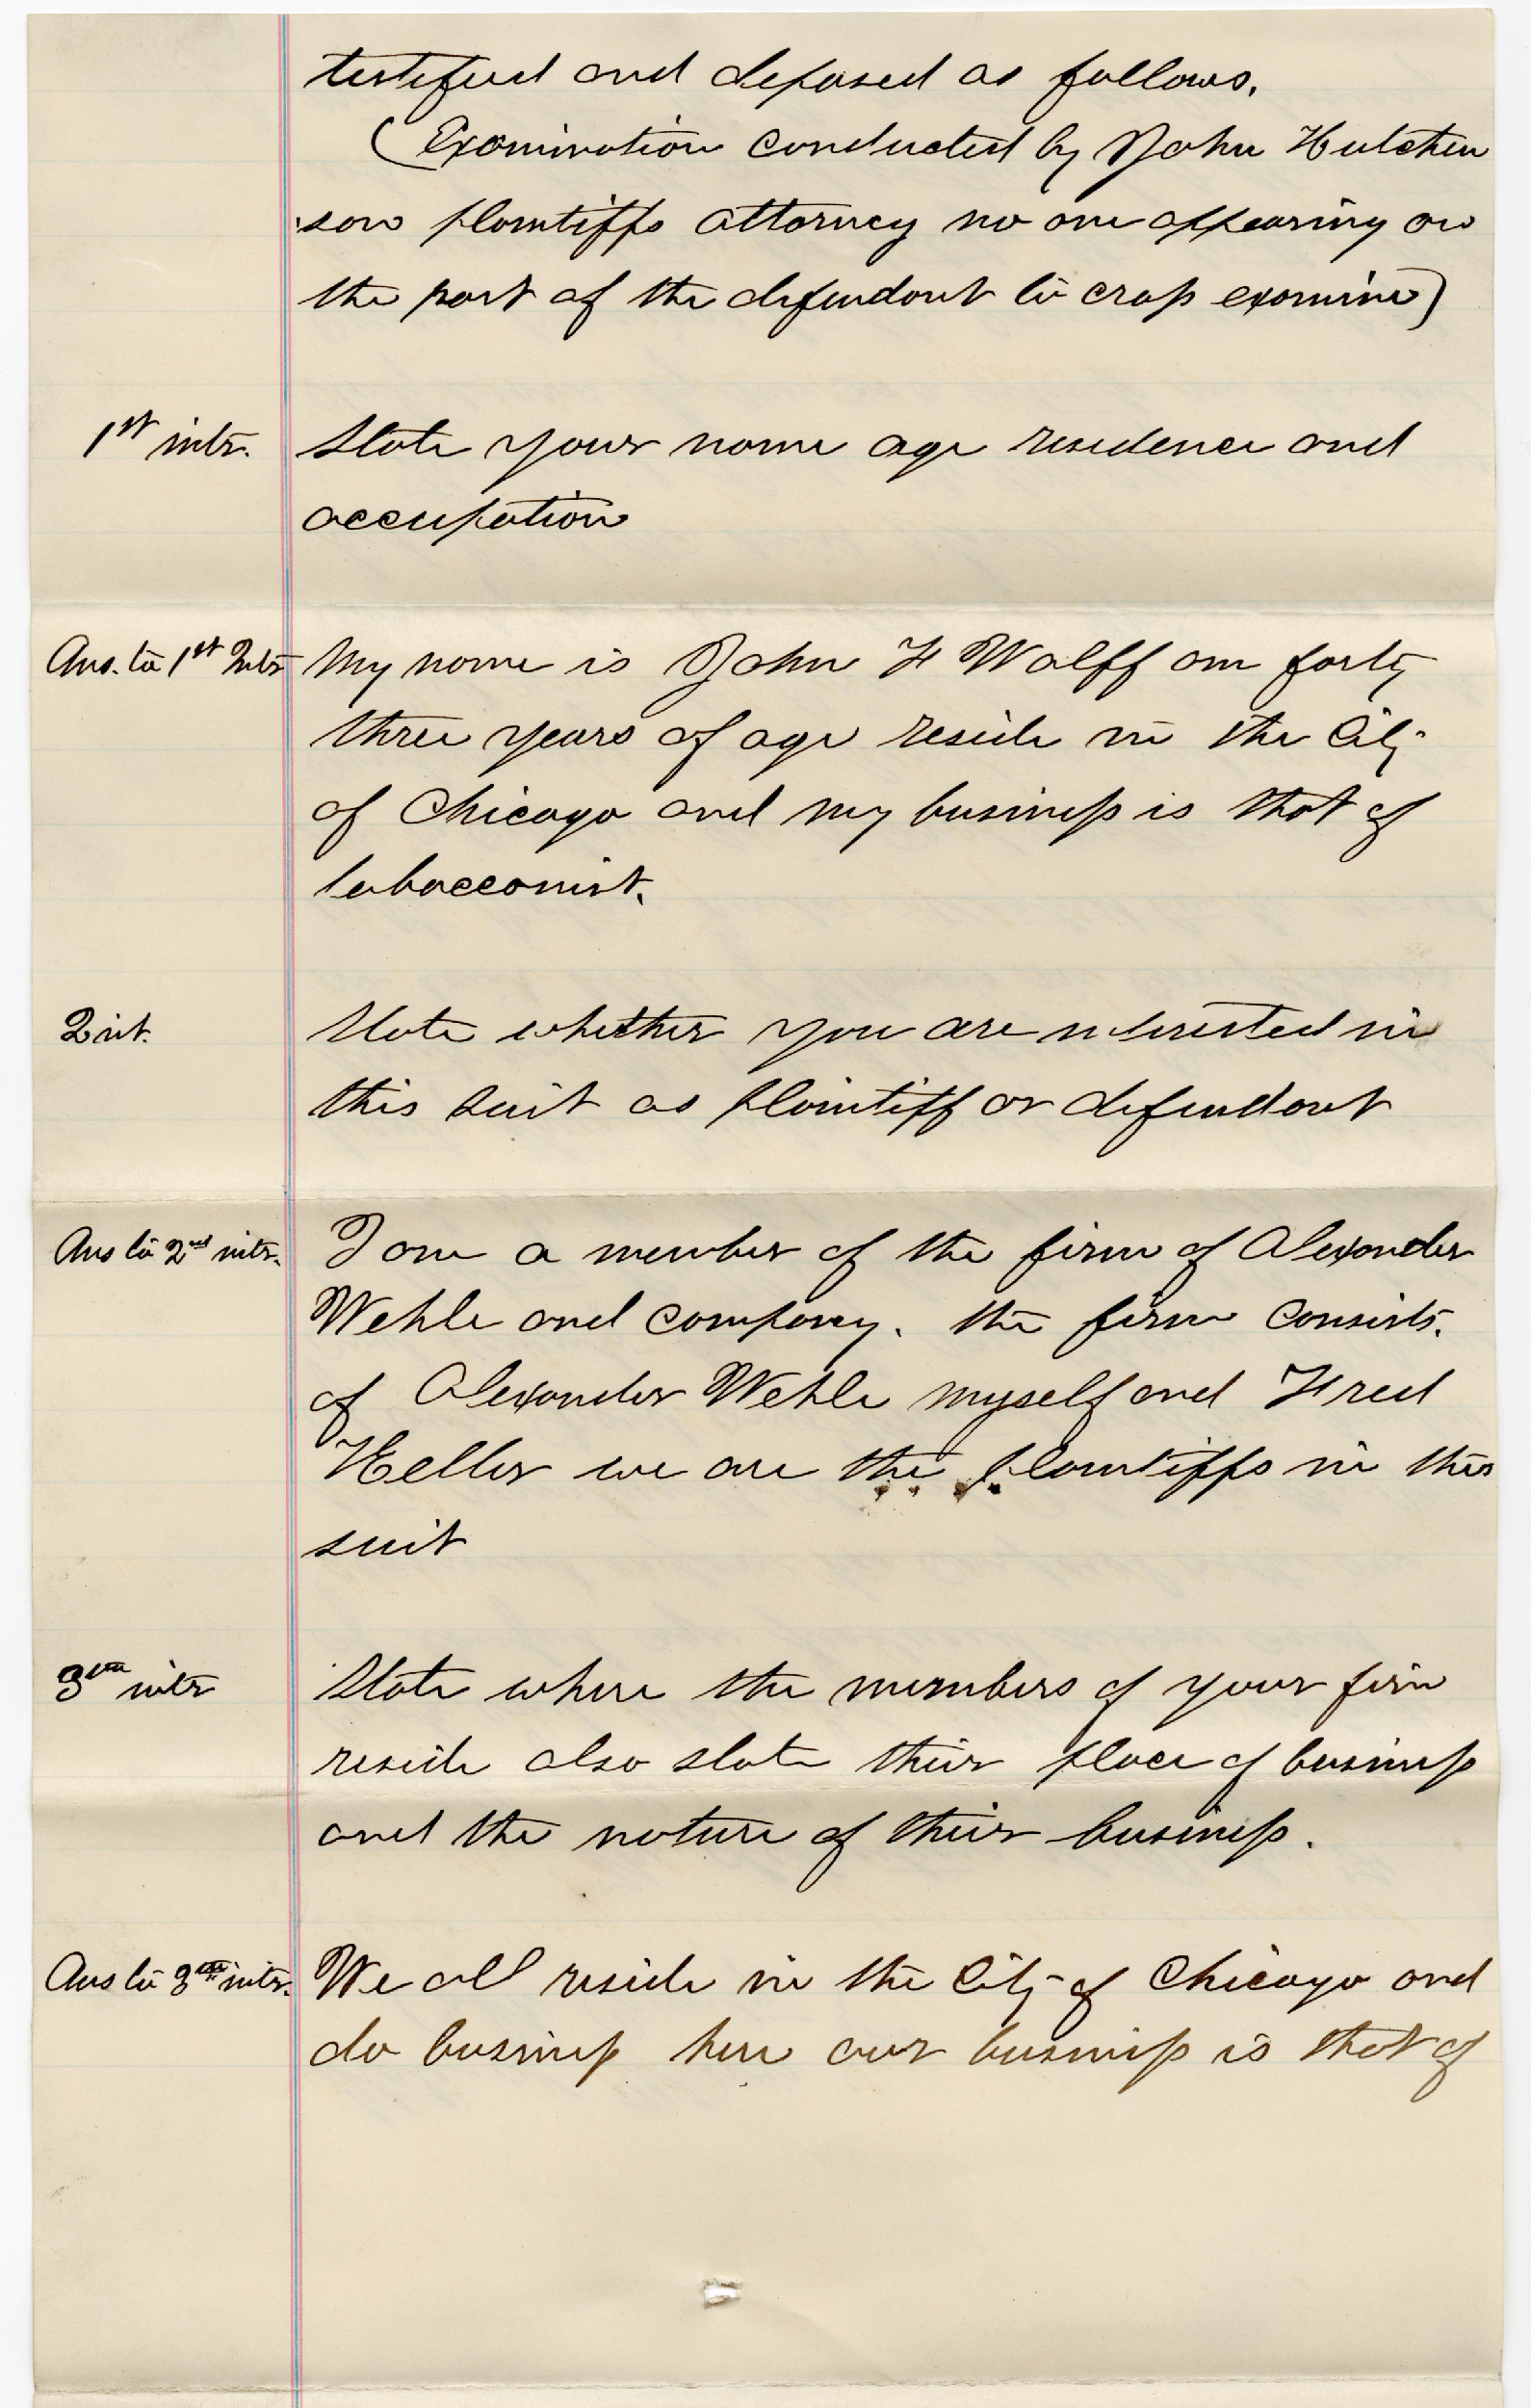 testified and deposed as follows.
(Examination conducted by John Hutchin
son plaintiffs attorney no one appearing on
the part of the defendant to cross examine)
1st intr. State your name age residence and
occupation
Ans. to 1st Intr My name is John H Wolff am forty
three years of age reside in the City
of Chicago and my business is that of
tobacconist.
2 int. State whether you are interested in
this suit as plaintiff or defendant
Ans to 2nd intr. I am a member of the firm of Alexander
Wehle and company. the firm consists.
of Alexander Wehle myself and Fred
Heller we are the plaintiffs in this
suit
3 intr State where the members of your firm
reside also state their place of business
and the nature of their business.
Ans to 3 intr. We all reside in the City of Chicago and
do business here our business is that of